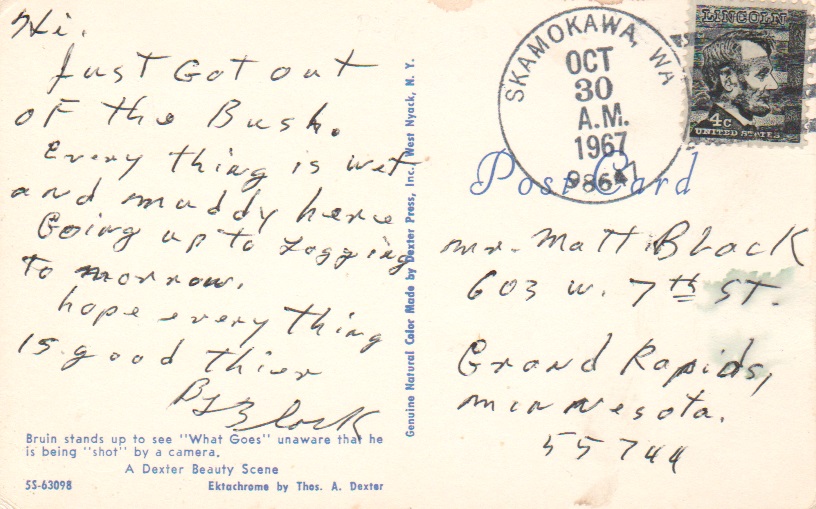 Hi.
Just Got out
of the Bush.
Every thing is wet
and muddy here
Going up to Logging
to morrow.
hope every thing
is good thier
Block
Bruin stands up to see "What Goes" unaware that he
is being "shot" by a camera.
A Dexter Beauty Scene
5S-63098 Ektachrome by Thos. A. Dexter
Genuine Natural Color Made by Dexter Press, Inc., West Nyack, N. Y.
SKAMOKAWA, WA
OCT
30
A.M.
1967
98647
LINCOLN
4c
UNITED STATES
Post Card
mr. Matt Block
603 w. 7th ST.
Grand Rapids,
minnesota.
55744